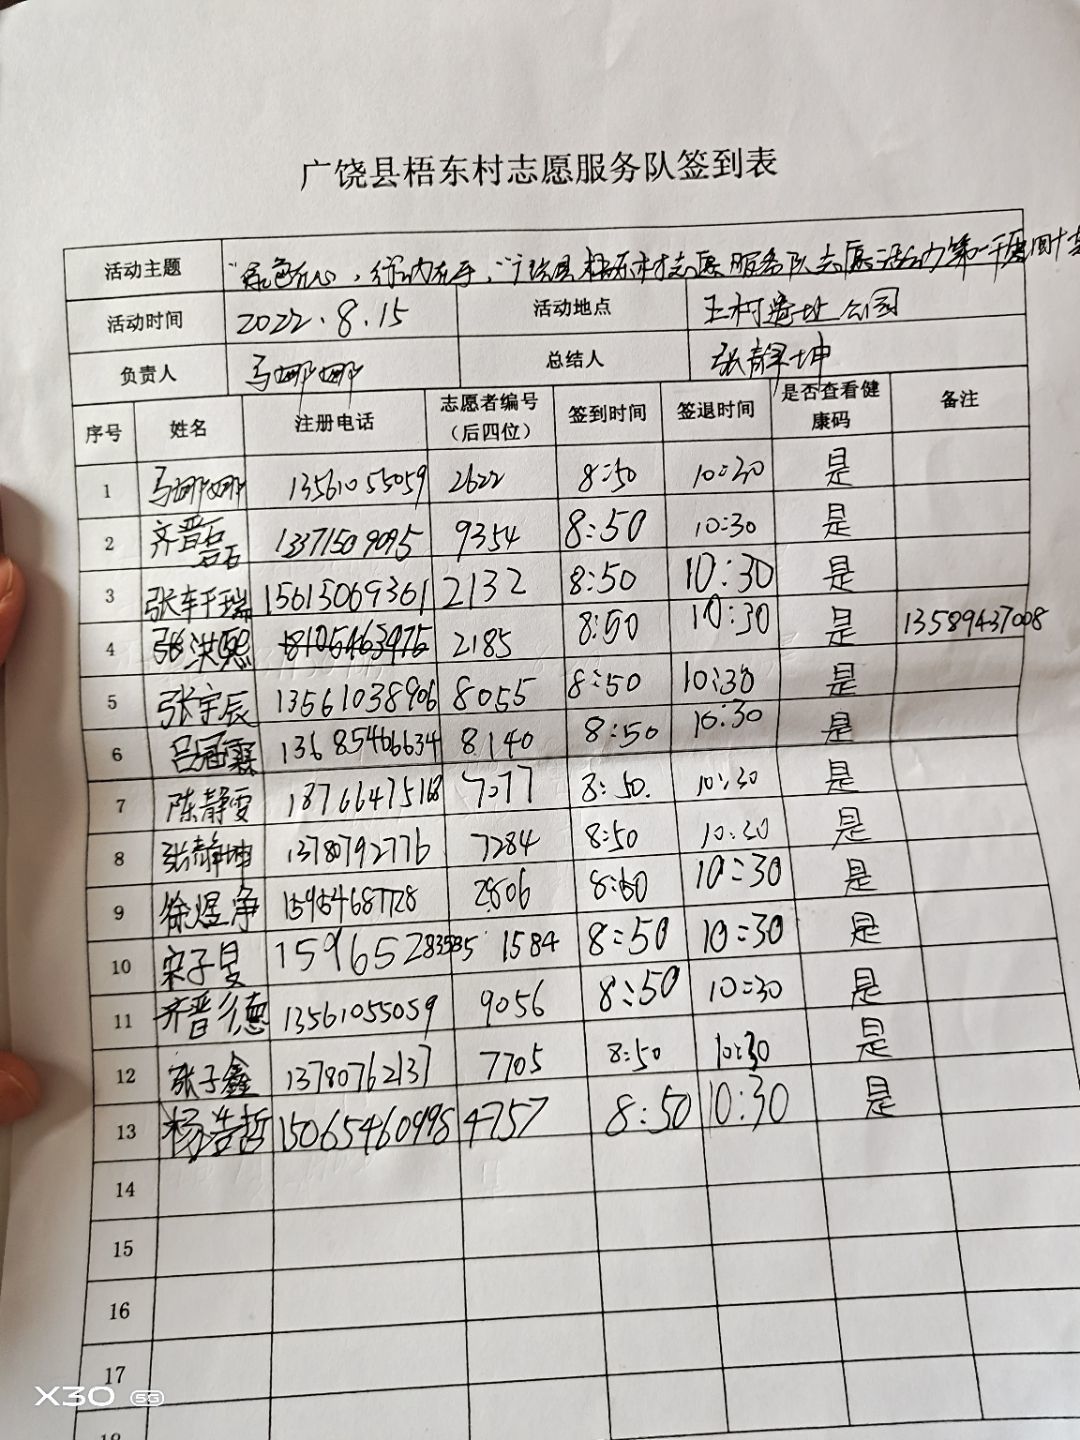 广饶县梧东村志愿服务队签到表
活动主题 广饶县梧东村志愿服务队志愿活动第一千
活动时间 2022.8.15 活动地点 王村 公园
负责人 马娜娜 总结人 张静坤
序号 姓名 注册电话 志愿者编号（后四位） 签到时间 签退时间 是否查看健康码 备注
1 马娜娜 13561055059 2622 8:50 10:30 是
2 齐晋 13371509095 9354 8:50 10:30 是
3 张轩瑞 15615069361 2132 8:50 10:30 是
4 张洪熙 2185 8:50 10:30 是 13589437008
5 张宇辰 13561038906 8055 8:50 10:30 是
6 吕冠霖 13685406634 8140 8:50 10:30 是
7 陈静雯 18766475168 7077 8:50. 10:30 是
8 张静坤 13780792776 7284 8:50 10:30 是
9 徐煜净 15954687728 2806 8:50 10:30 是
10 宋子旻 1584 8:50 10:30 是
11 齐晋德 13561055059 9056 8:50 10:30 是
12 张子鑫 13780762137 7705 8:50 10:30 是
13 杨浩哲 15065460998 4757 8:50 10:30 是
14
15
16
17
18
X30 5G